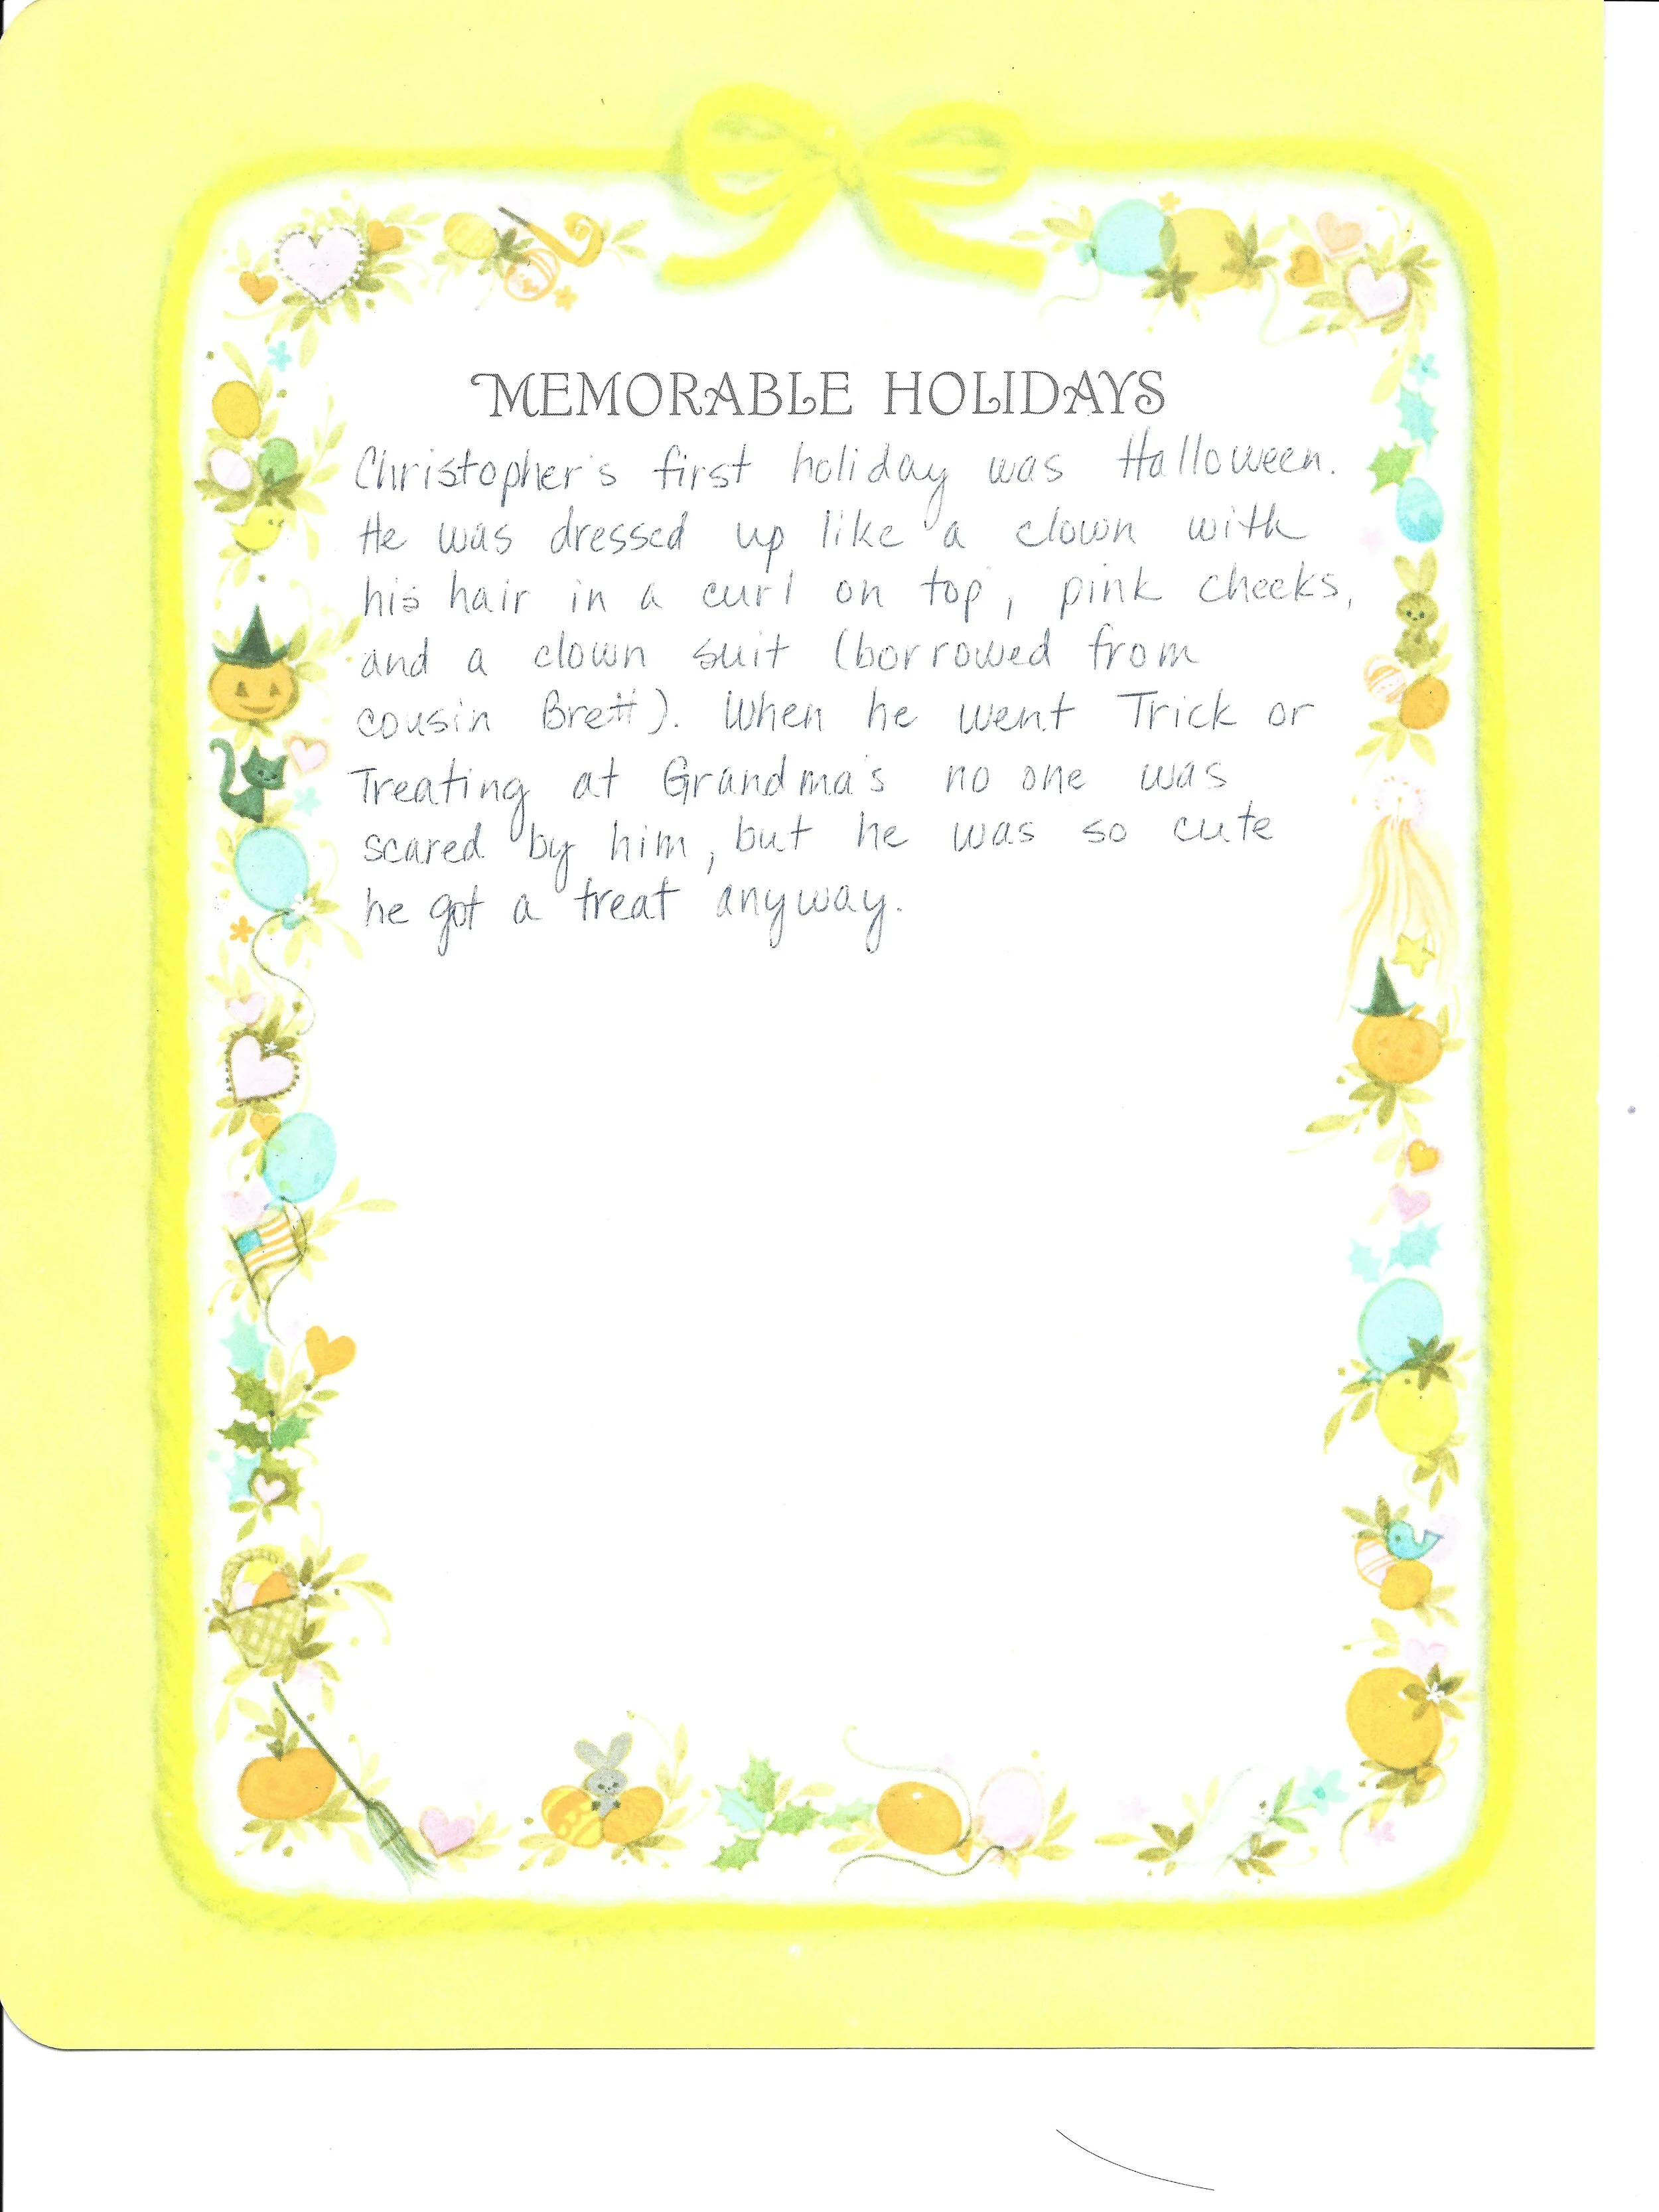 MEMORABLE HOLIDAYS
Christopher's first holiday was Halloween.
He was dressed up like a clown with
his hair in a curl on top, pink cheeks,
and a clown suit (borrowed from
cousin Brett). When he went Trick or
Treating at Grandma's no one was
scared by him, but he was so cute
he got a treat anyway.